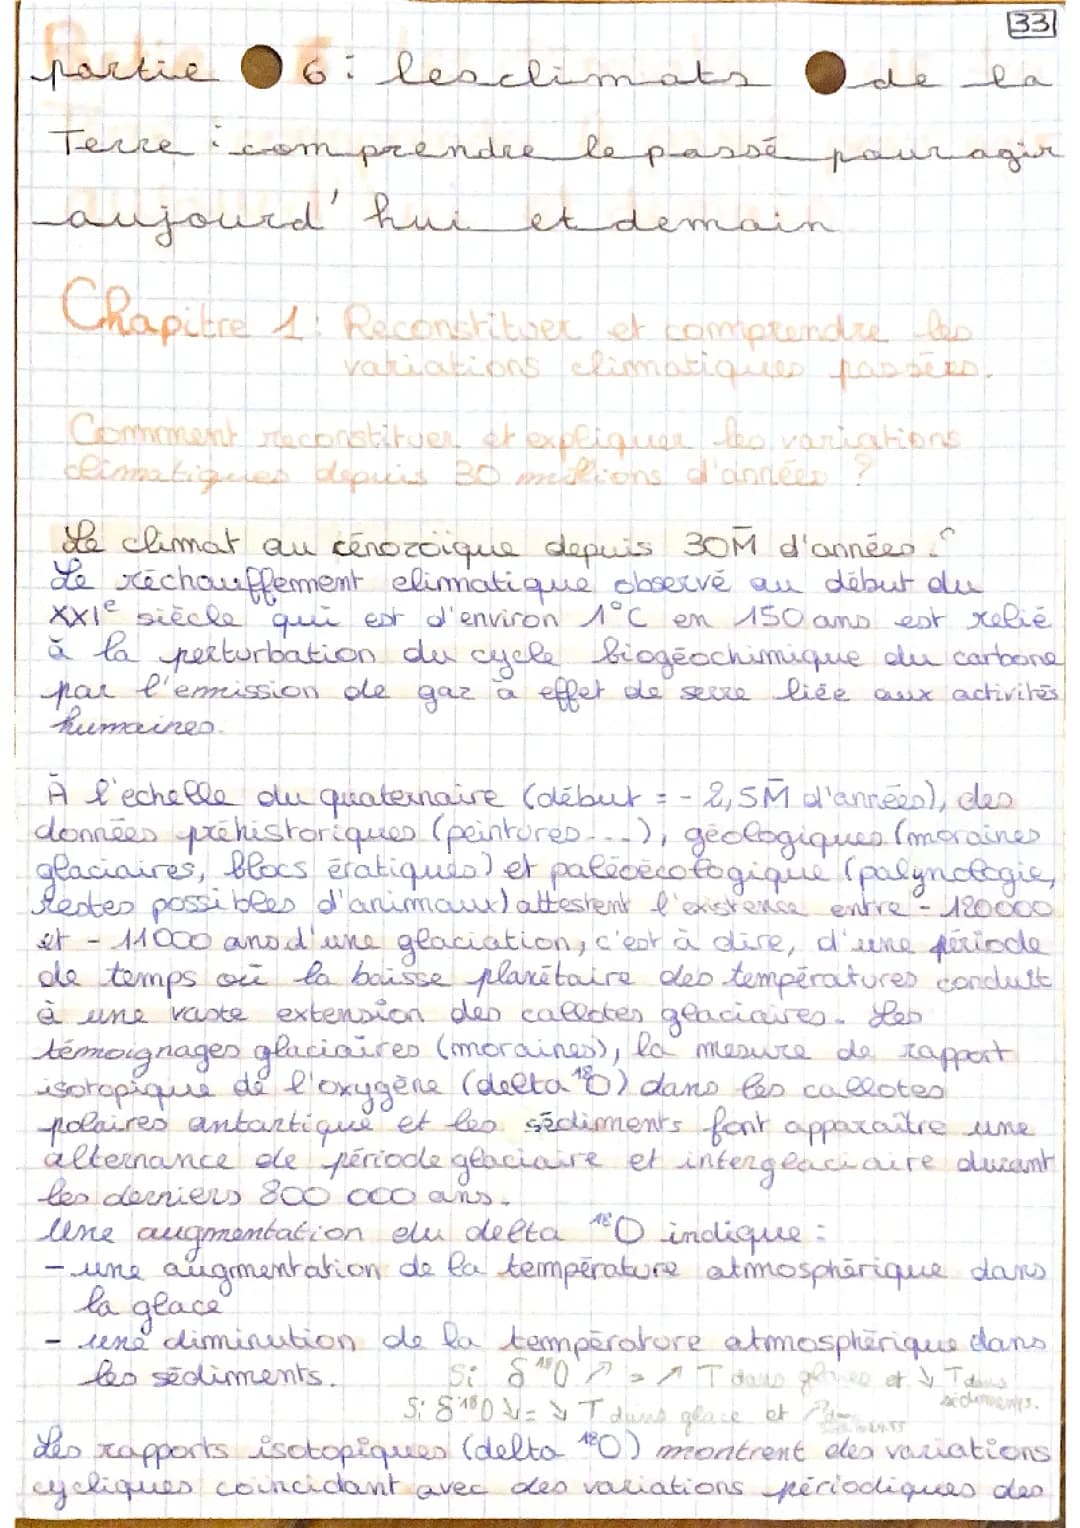 33
partie 6 : les climats de la
Terre : comprendre le passé pour agir
aujourd'hui et demain
Chapitre 1 : Reconstituer et comprendre les
variations climatiques passées.
Comment reconstituer et expliquer les variations
climatiques depuis 30 millions d'années ?
Le climat au cénozoïque depuis 30M̄ d'années.
Le réchauffement climatique observé au début du
XXIe siècle qui est d'environ 1°C en 150 ans est relié
à la perturbation du cycle biogéochimique du carbone
par l'émission de gaz à effet de serre liée aux activités
humaines.
À l'echelle du quaternaire (début = - 2,5M̄ d'années), des
données préhistoriques (peintures...), géologiques (moraines
glaciaires, blocs ératiques) et paléoécologique (palynologie,
restes possibles d'animaux) attestent l'existence entre - 120000
et - 11000 ans d'une glaciation, c'est à dire, d'une période
de temps où la baisse planétaire des températures conduit
à une vaste extension des callotes glaciaires. Les
témoignages glaciaires (moraines), la mesure de rapport
isotopique de l'oxygène (delta ¹⁸O) dans les callotes
polaires antartique et les sédiments font apparaître une
alternance de période glaciaire et interglaciaire durant
les derniers 800 000 ans.
Une augmentation du delta ¹⁸O indique :
- une augmentation de la température atmosphérique dans
la glace
- une diminution de la température atmosphérique dans
les sédiments. Si δ¹⁸O ↗ = ↗ T dans glaces et ↘ T dans
sédiments.
Si δ¹⁸O ↘ = ↘ T dans glace et ↗ dans
sédiments
Les rapports isotopiques (delta ¹⁸O) montrent des variations
cycliques coïncidant avec des variations périodiques des